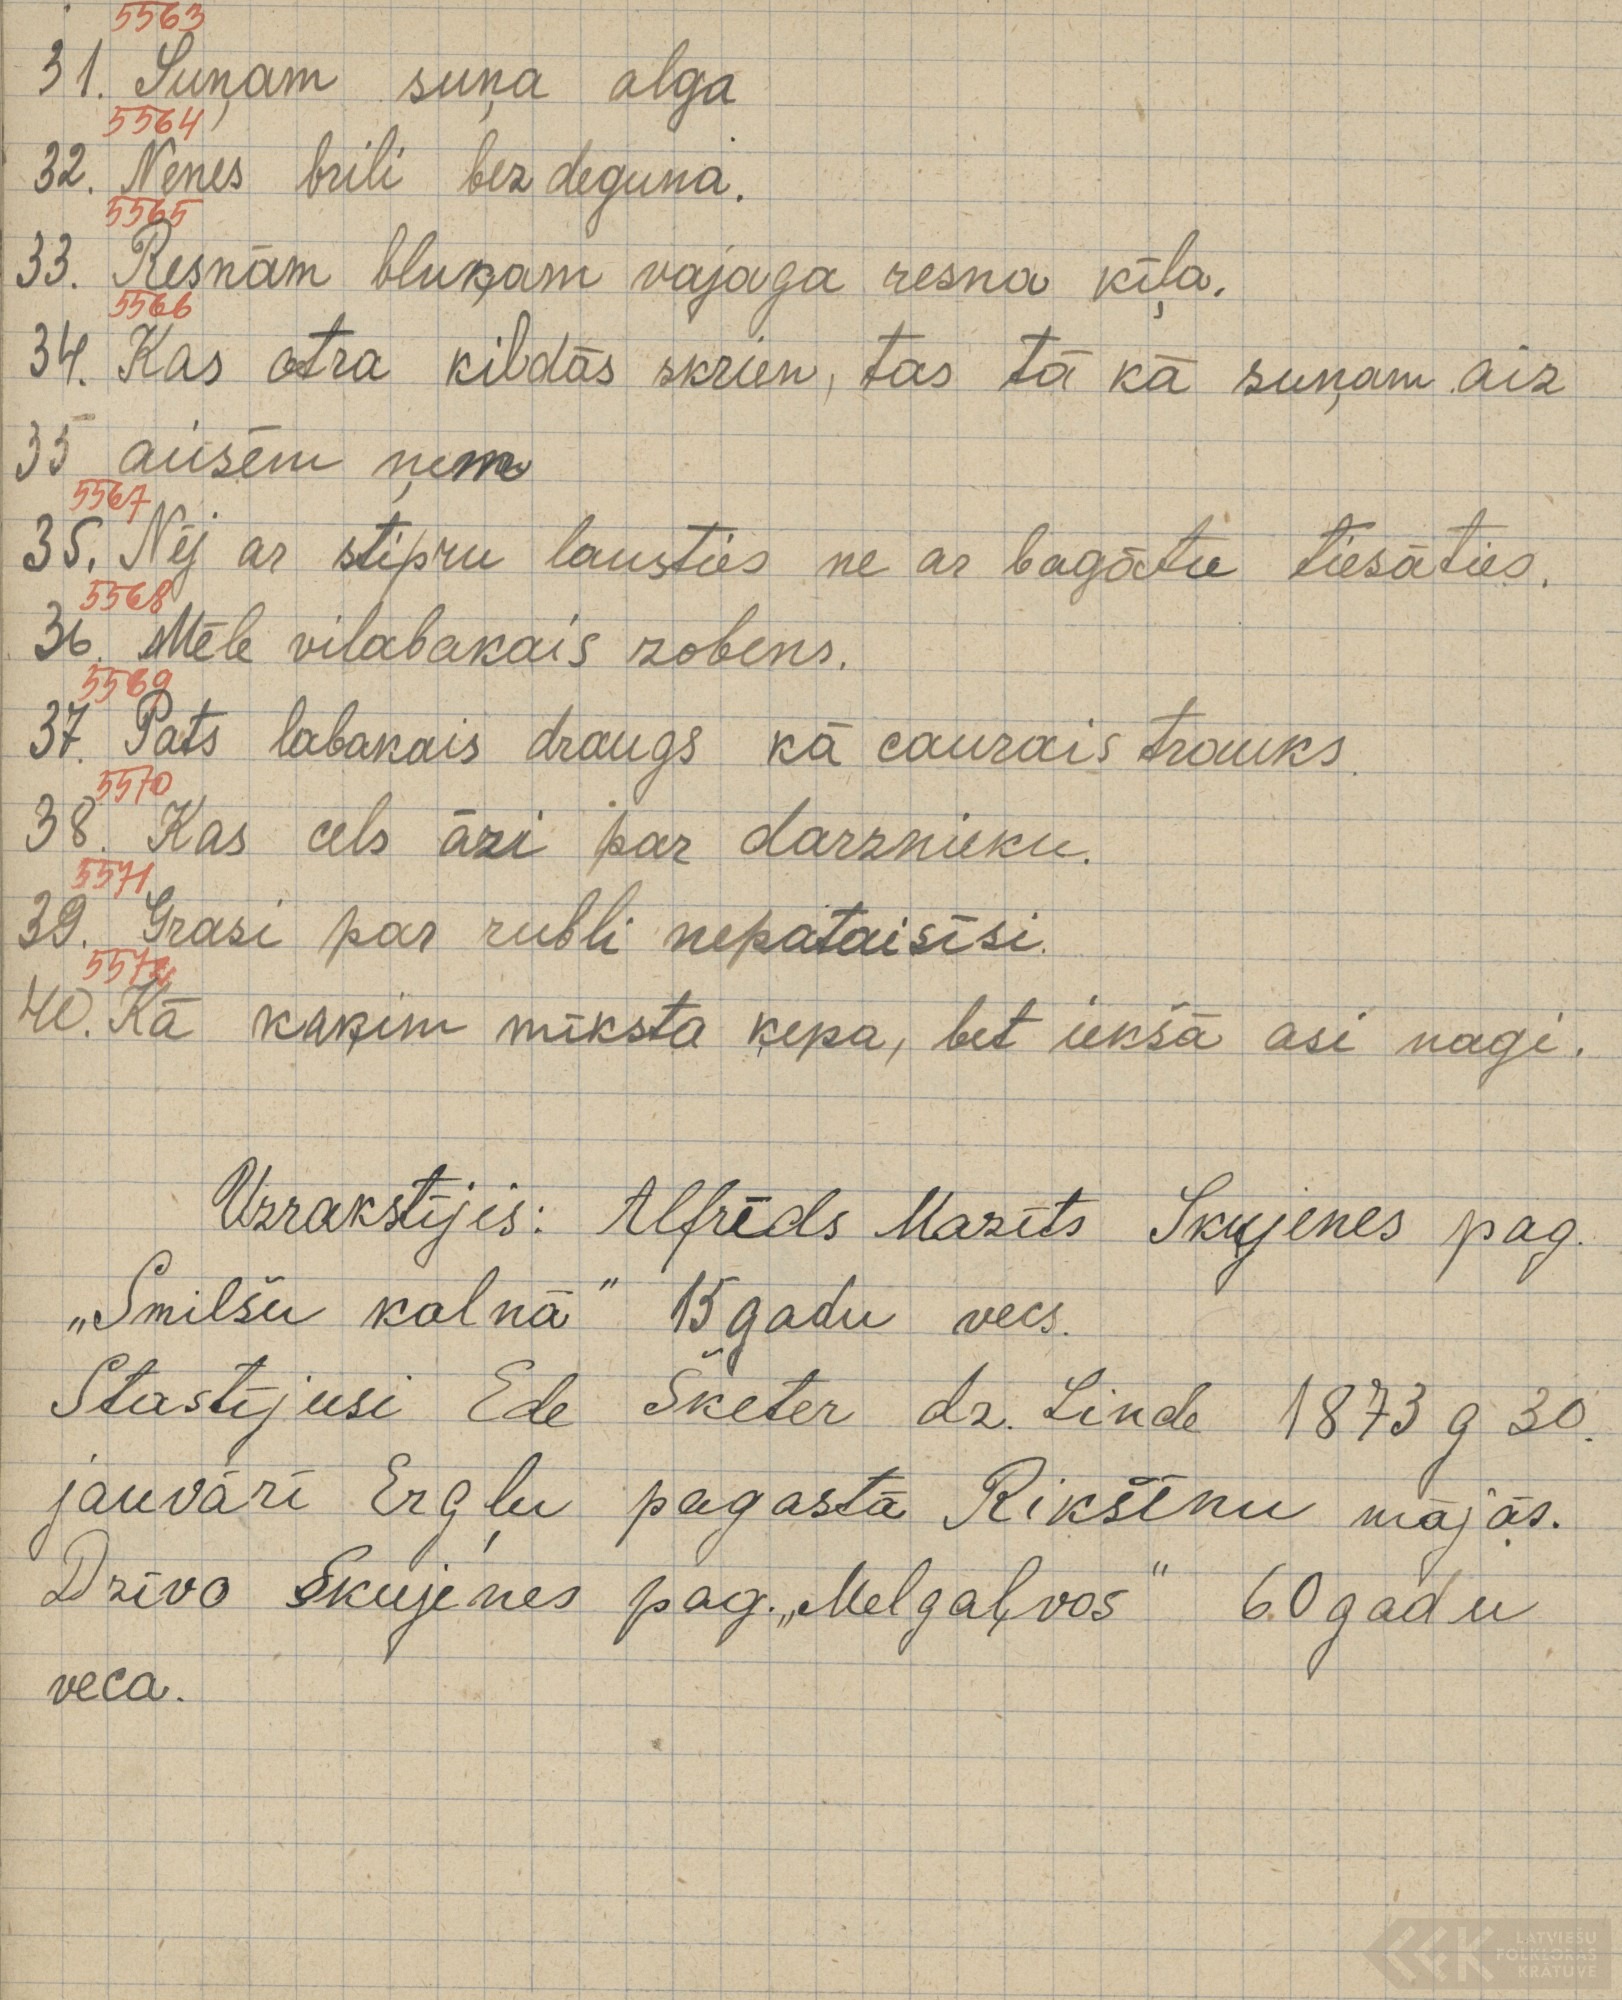 5563
31. Suņam suņa alga
5564
32. Nenes brili bez deguna.
5565
33. Resnām bluķam vajaga resna ķīļa.
5566
34. Kas otra kildās skrien, tas tā kā suņam aiz
35 ausēm ņem
5567
35. Nēj ar stipru lausties ne ar bagātu tiesāties.
5568
36. Mēle vilabakais zobens.
5569
37. Pats labakais draugs kā caurais trauks.
5570
38. Kas cels āzi par darznieku.
5571
39. Grasi par rubli nepataisīsi.
5572
40. Kā kaķim mīksta ķepa, bet iekšā asi nagi.
Uzrakstījis: Alfrēds Mazīts Skujenes pag.
„Smilšu kalnā" 15 gadu vecs.
Stastījusi Ede Šķeter dz. Linde 1873 g 30.
janvārī Ergļu pagastā Rikšēnu mājās.
Dzīvo Skujenes pag. „Melgaļvos" 60 gadu
veca.
LATVIEŠU
FOLKLORAS
KRĀTUVE